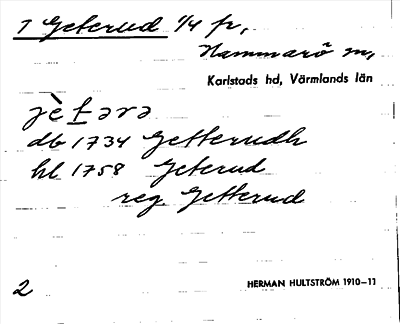 1 Geterud 1/4 fr,
Hammarö sn,
Karlstads hd, Värmlands län
jètərə
db 1734 Getterudh
hl 1758 Geterud
reg. Getterud
2
HERMAN HULTSTRÖM 1910-11